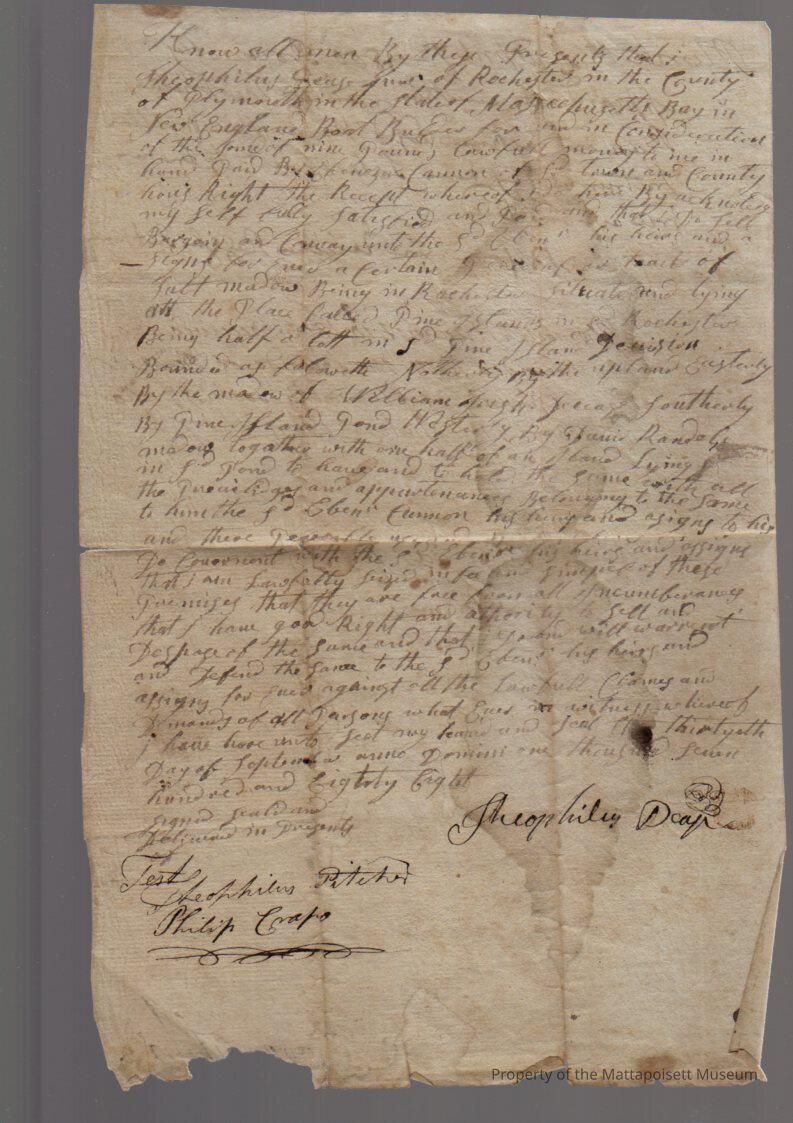 Know all men By these Presents that i
Theophilus Pease Junr of Rochester in the County
of Plymouth in the State of Massachusetts Bay in
New England Boat Builder for and in Consideration
of the some of nine Pounds Lawfull money to me in
hand Paid By Ebenezer Cannon of sd town and County
the Recept whereof I do here By acknoledg
my Self fully Satisfied and Paid and that I do Sell
Bargain and Convay unto the sd Eben his heirs and a
signs for Ever a Certain Peace or tract of
Salt madow Being in Rochester Situate and lying
att the Place Called Pine Islands in sd Rochester
Being half a lott in sd Pine Island Devision
Bounded as followeth Northerly By the upland Easterly
By the madow of William Southerly
By Pine Island Pond Westerly By David Randals
madow together with one half of an Island Lying
in sd Pond to have and to hold the Same with all
the Priviledges and appurtenances Belonging to the Same
to him the sd Ebenr Cannon his heirs and asigns to his
and there
Do Covernent with the sd Ebenr his heirs and assigns
that i am Lawfully seized in fee and simple of these
Premises that they are free from all Incumberances
that I have good Right and athority to Sell and
Dospose of the Same and that I will warrent
and Defend the Same to the sd Ebenr his heirs and
assigns for Ever against all the Lawfull Claimes and
Demands of all Parsons what Ever in witness whereof
I have here unto Seet my hand and Seal this thirtyeth
Day of September anno Domini one thousand Seven
hundred and Eightly Eight
Signed Seald and
Delivered in Presents
of
Theophilus Pease
Test
Theophilus Pitcher
Philip Crapo
Property of the Mattapoisett Museum